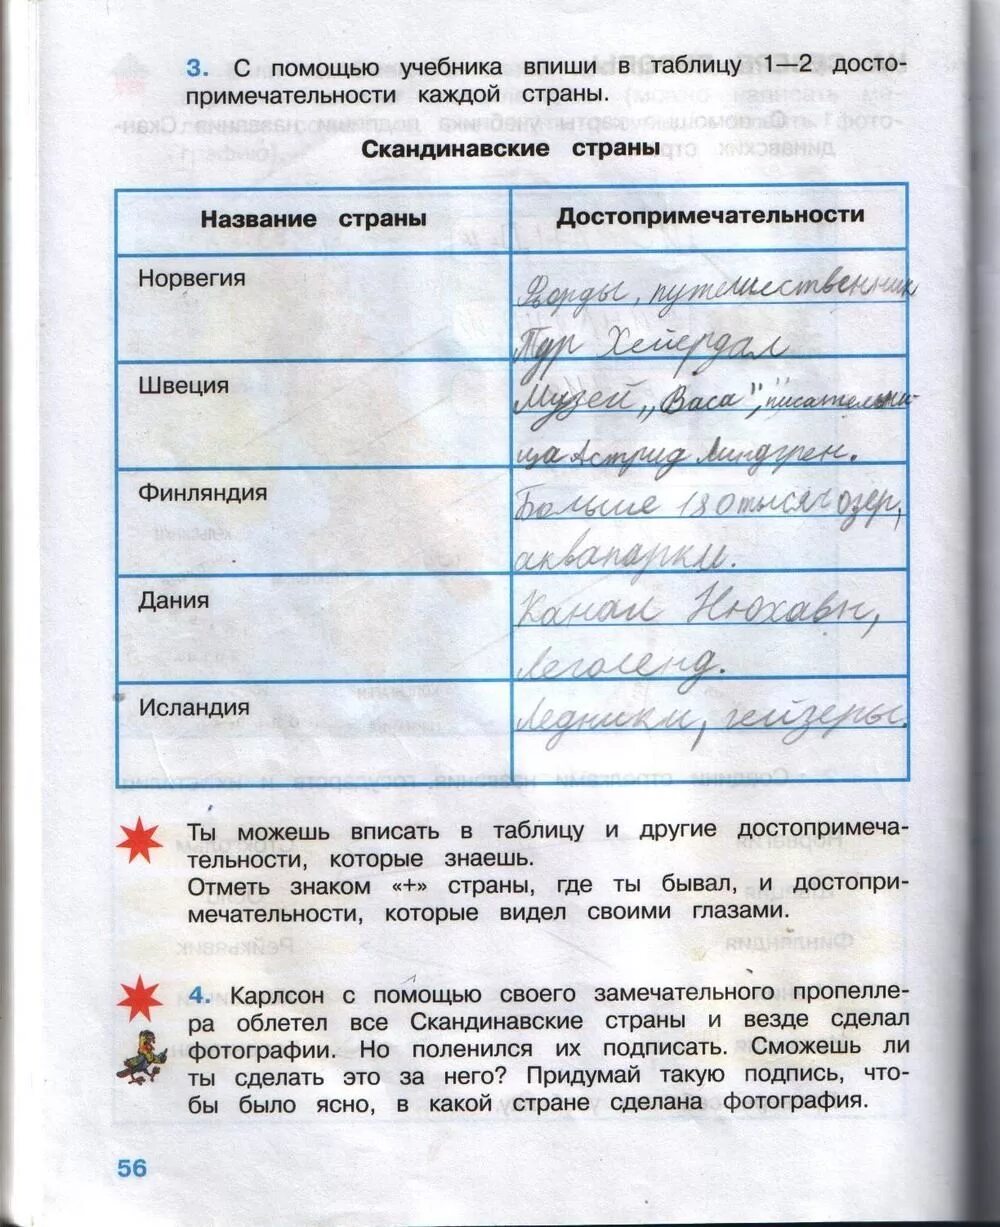 3. С помощью учебника впиши в таблицу 1—2 досто-
примечательности каждой страны.
Скандинавские страны
Название страны
Достопримечательности
Норвегия
Фьорды, путешественник
Тур Хейердал
Швеция
Музей „Васа", писательни-
ца Астрид Линдгрен.
Финляндия
Больше 180 тысяч озер,
аквапарки.
Дания
Канал Нюхавн,
Леголенд.
Исландия
Ледники, гейзеры.
Ты можешь вписать в таблицу и другие достопримеча-
тельности, которые знаешь.
Отметь знаком «+» страны, где ты бывал, и достопри-
мечательности, которые видел своими глазами.
4. Карлсон с помощью своего замечательного пропелле-
ра облетел все Скандинавские страны и везде сделал
фотографии. Но поленился их подписать. Сможешь ли
ты сделать это за него? Придумай такую подпись, что-
бы было ясно, в какой стране сделана фотография.
56